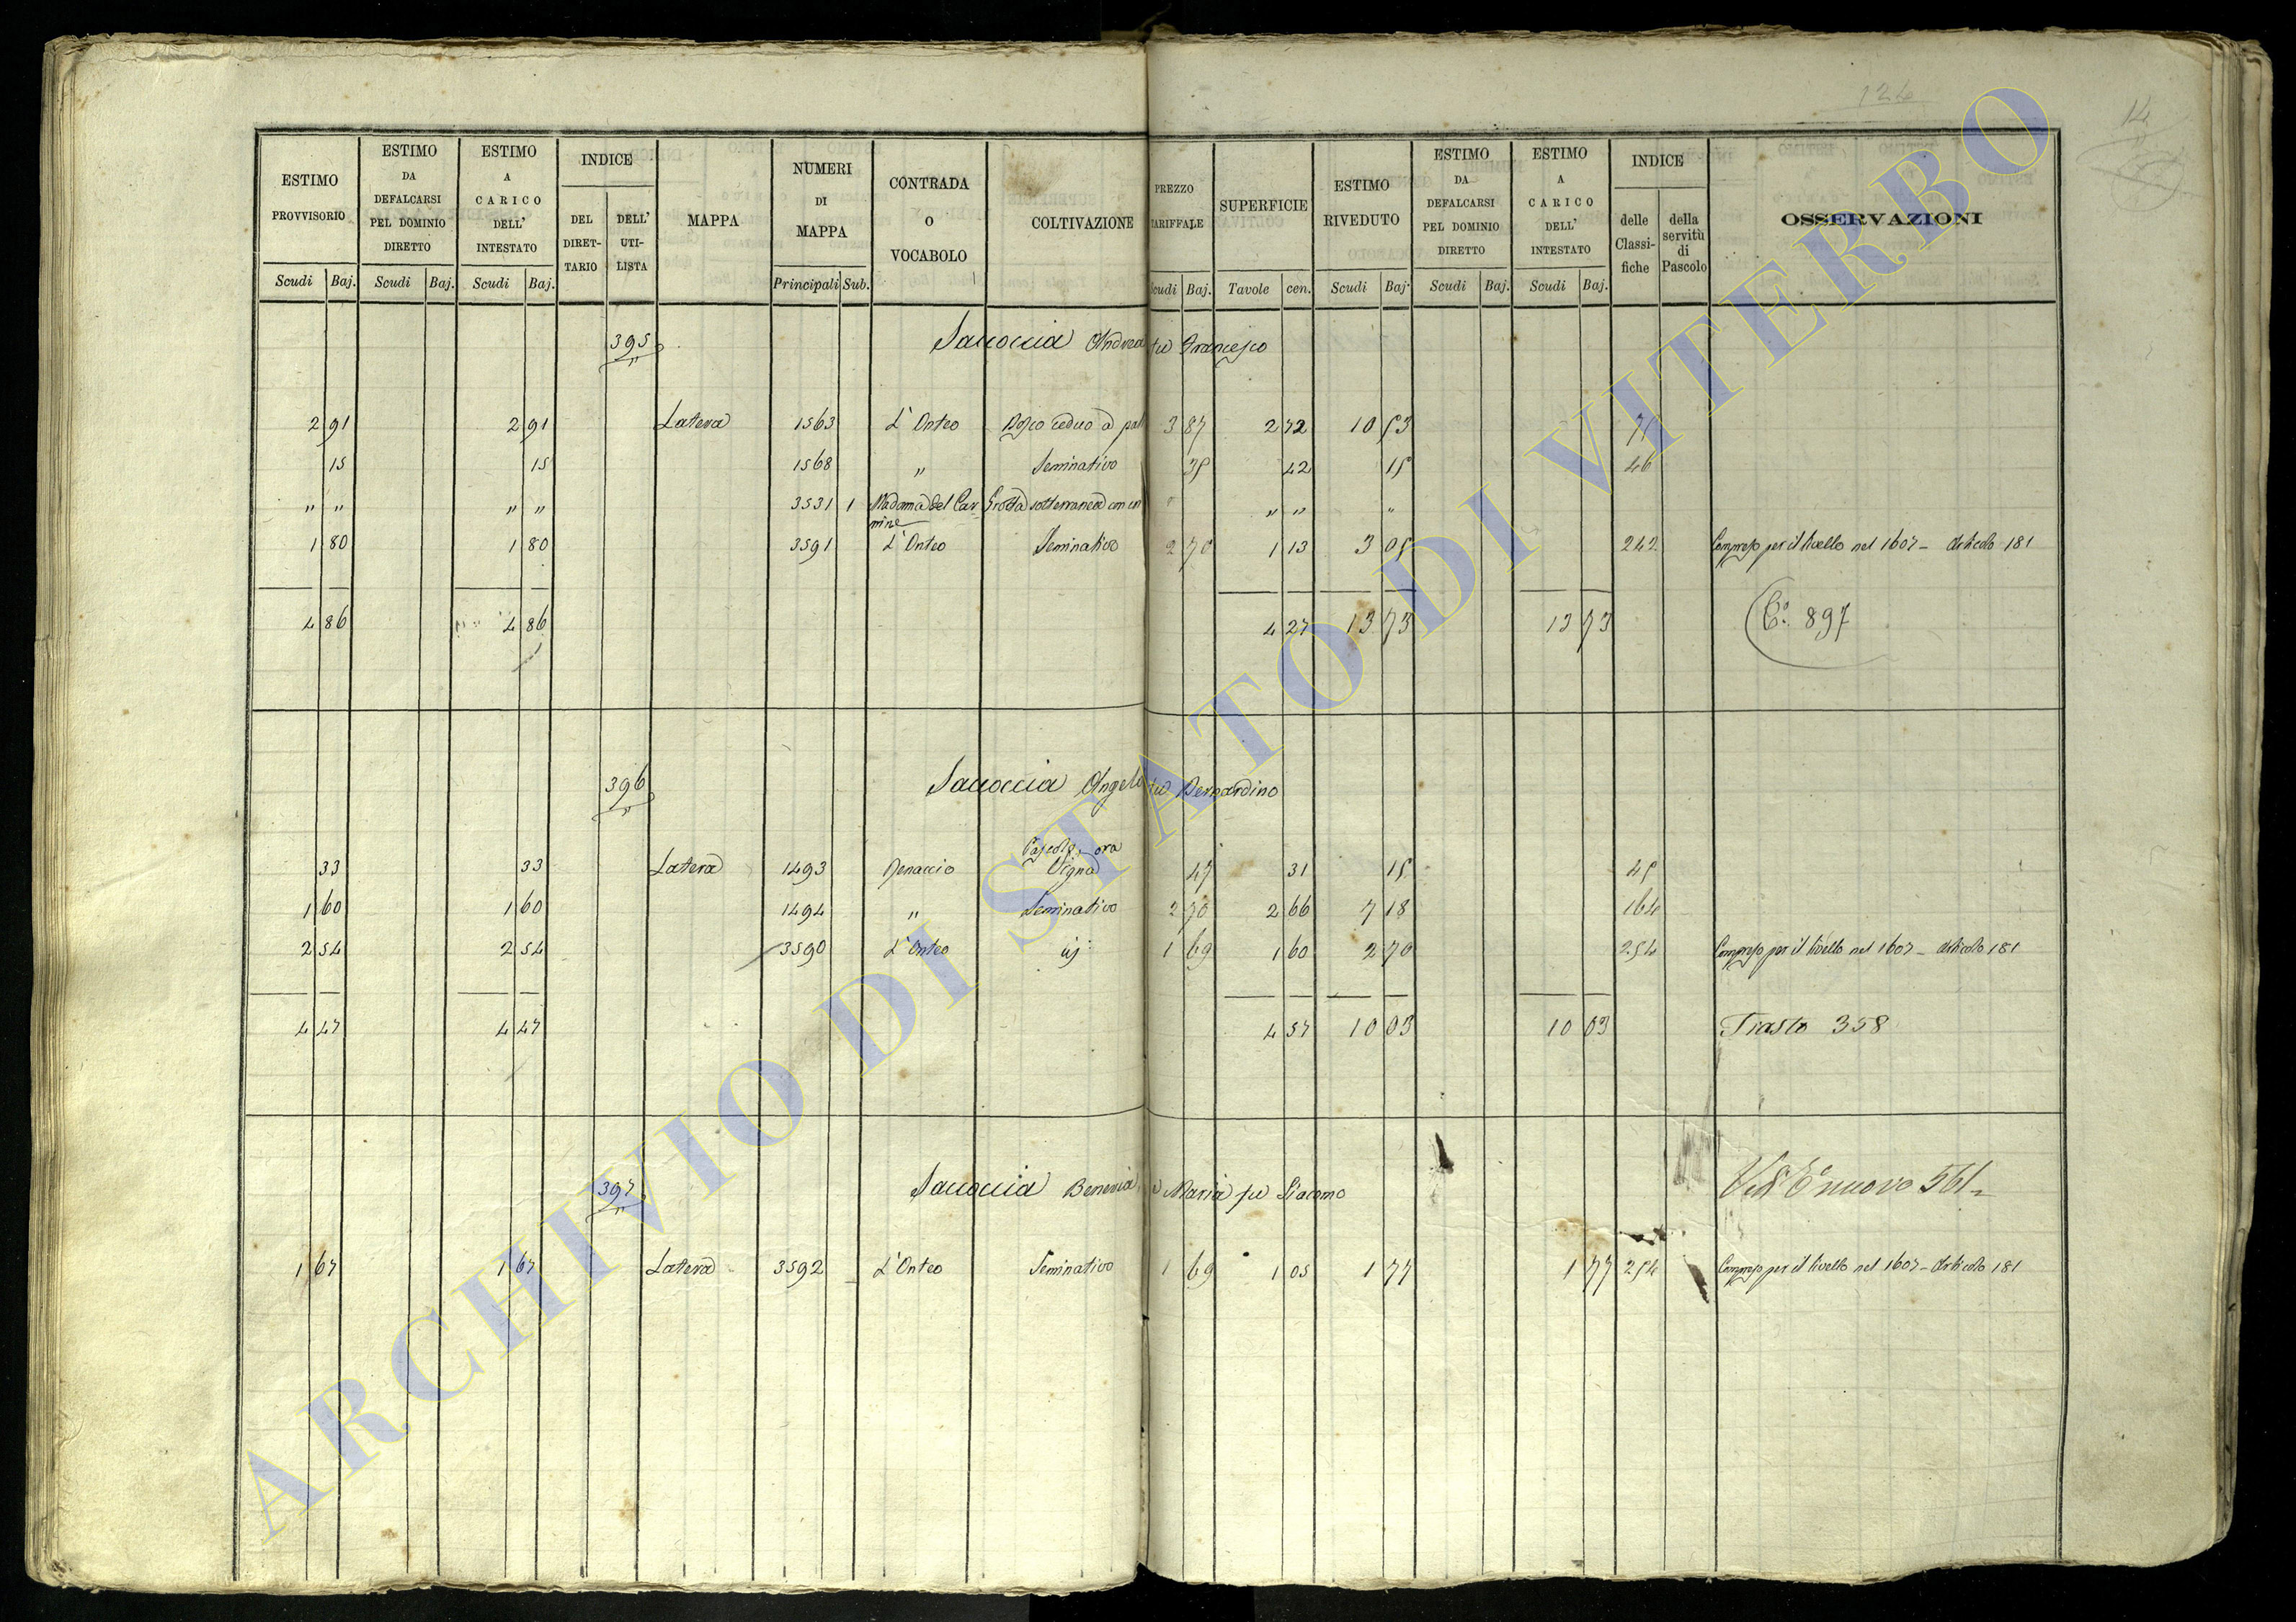 124
14
ESTIMO PROVVISORIO | ESTIMO DA DEFALCARSI PEL DOMINIO DIRETTO | ESTIMO A CARICO DELL' INTESTATO | INDICE | MAPPA | NUMERI DI MAPPA | CONTRADA O VOCABOLO | COLTIVAZIONE | PREZZO TARIFFALE | SUPERFICIE | ESTIMO RIVEDUTO | ESTIMO DA DEFALCARSI PEL DOMINIO DIRETTO | ESTIMO A CARICO DELL' INTESTATO | INDICE | OSSERVAZIONI
DEL DIRETTARIO | DELL' UTILISTA | delle Classifiche | della servitù di Pascolo
Scudi | Baj. | Scudi | Baj. | Scudi | Baj. | Principali | Sub. | Scudi | Baj. | Tavole | cen. | Scudi | Baj. | Scudi | Baj. | Scudi | Baj.
395 Saccoccia Andrea fu Francesco
2 91 | 2 91 | Latera | 1563 | L'Onteo | Bosco ceduo a pal | 3 87 | 2 72 | 10 53 | 71
15 | 15 | 1568 | " | Seminativo | 35 | 42 | 15 | 46
" " | " " | 3531 | 1 | Madonna del Carmine | Grotta sotterranea con | " " | "
1 80 | 1 80 | 3591 | L'Onteo | Seminativo | 2 70 | 1 13 | 3 05 | 242 | Compreso per il livello nel 1607 - Articolo 181
4 86 | 4 86 | 4 27 | 13 73 | 13 73 | Co. 897
396 Saccoccia Angelo fu Bernardino
33 | 33 | Latera | 1493 | Renaccio | Pascolo, ora Vigna | 47 | 31 | 15 | 45
1 60 | 1 60 | 1494 | " | Seminativo | 2 70 | 2 66 | 7 18 | 164
2 54 | 2 54 | 3590 | L'Onteo | | 1 69 | 1 60 | 2 70 | 254 | Compreso per il livello nel 1607 - Articolo 181
4 47 | 4 47 | 4 57 | 10 03 | 10 03 | Tiasto 358
397 Saccoccia Maria fu Giacomo | nuovo 561
1 67 | 1 67 | Latera | 3592 | L'Onteo | Seminativo | 1 69 | 1 05 | 1 77 | 1 77 | 254 | Compreso per il livello nel 1607 - Articolo 181
ARCHIVIO DI STATO DI VITERBO